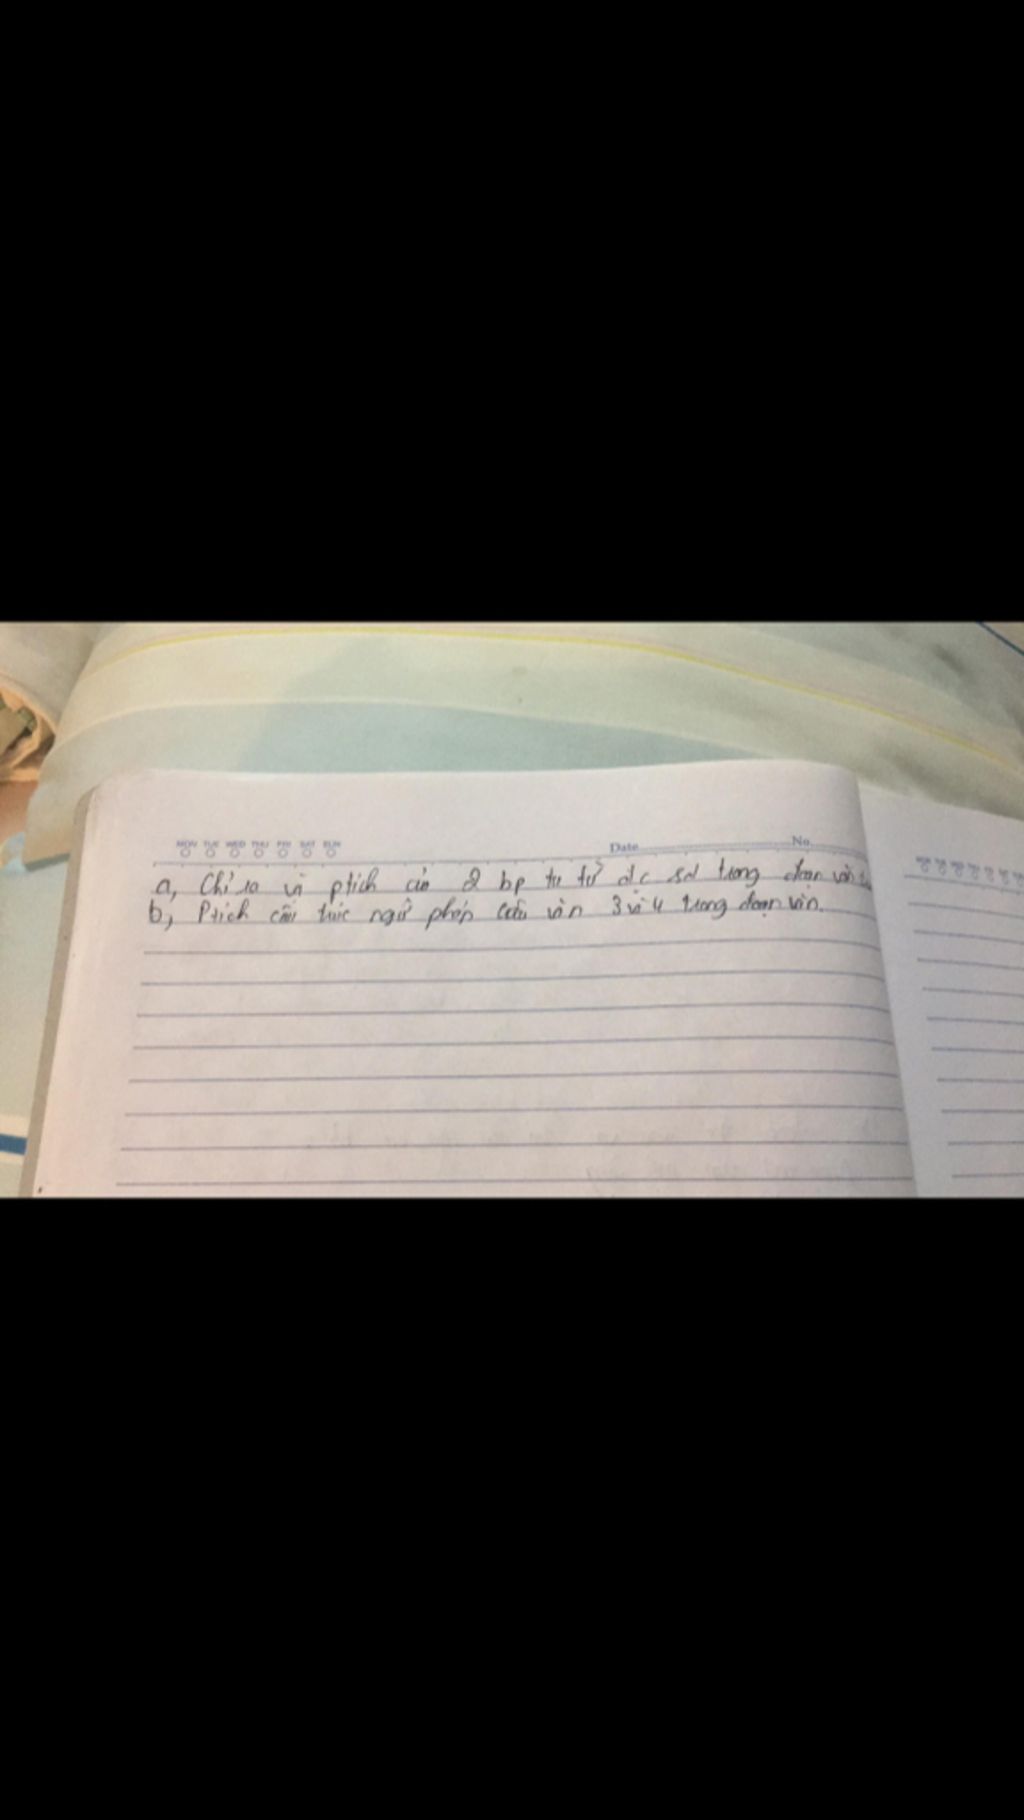 MON TUE WED THU FRI SAT SUN Date No.
a, Chỉ ra và ptích của 2 bp tu từ đc sd trong đoạn văn
b, Ptích cấu trúc ngữ pháp câu văn 3 và 4 trong đoạn văn.